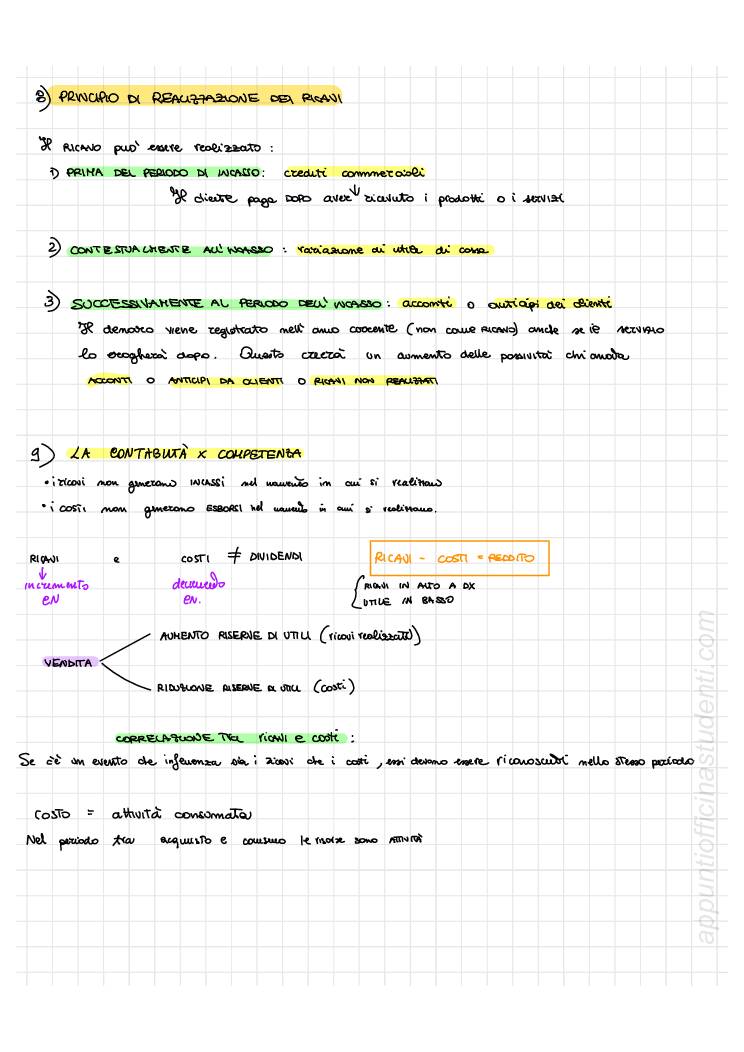 8) PRINCIPIO DI REALIZZAZIONE DEI RICAVI
Il RICAVO può essere realizzato :
1) PRIMA DEL PERIODO DI INCASSO: crediti commerciali
Il cliente paga DOPO aver ricevuto i prodotti o i SERVIZI
2) CONTESTUALMENTE ALL'INCASSO : variazione di utile di cassa
3) SUCCESSIVAMENTE AL PERIODO DELL'INCASSO : acconti o anticipi dei clienti
Il denaro viene registrato nell'anno corrente (non come RICAVO) anche se il servizio
lo erogherà dopo. Questo creerà un aumento delle passività chiamata
ACCONTI O ANTICIPI DA CLIENTI O RICAVI NON REALIZZATI
9) LA CONTABILITÀ X COMPETENZA
• i ricavi non generano INCASSI nel momento in cui si realizzano
• i costi non generano ESBORSI nel momento in cui si realizzano.
RICAVI e COSTI ≠ DIVIDENDI
RICAVI - COSTI = REDDITO
↓
incremento decremento
EN EN.
RICAVI IN ALTO A DX
UTILE IN BASSO
AUMENTO RISERVE DI UTILI (ricavi realizzati)
VENDITA
RIDUZIONE RISERVE DI UTILI (costi)
CORRELAZIONE TRA ricavi e costi :
Se c'è un evento che influenza sia i ricavi che i costi, essi devono essere riconosciuti nello stesso periodo
COSTO = attività consumata
Nel periodo tra acquisto e consumo le risorse sono ATTIVITÀ
appuntiofficinastudenti.com